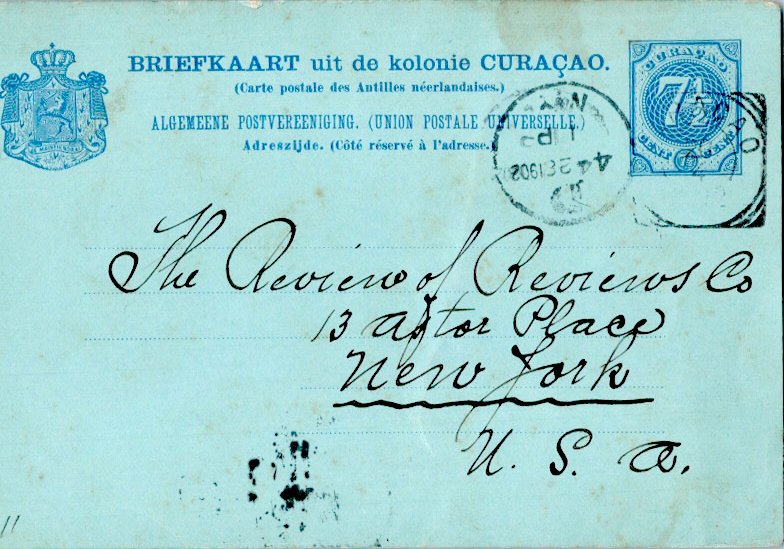 BRIEFKAART uit de kolonie CURAÇAO.
(Carte postale des Antilles néerlandaises.)
ALGEMEENE POSTVEREENIGING. (UNION POSTALE UNIVERSELLE.)
Adreszijde. (Côté réservé à l'adresse.)
CURAÇAO
7½
CENT CENT
1902
The Review of Reviews Co
13 Astor Place
New York
U. S. A.
11